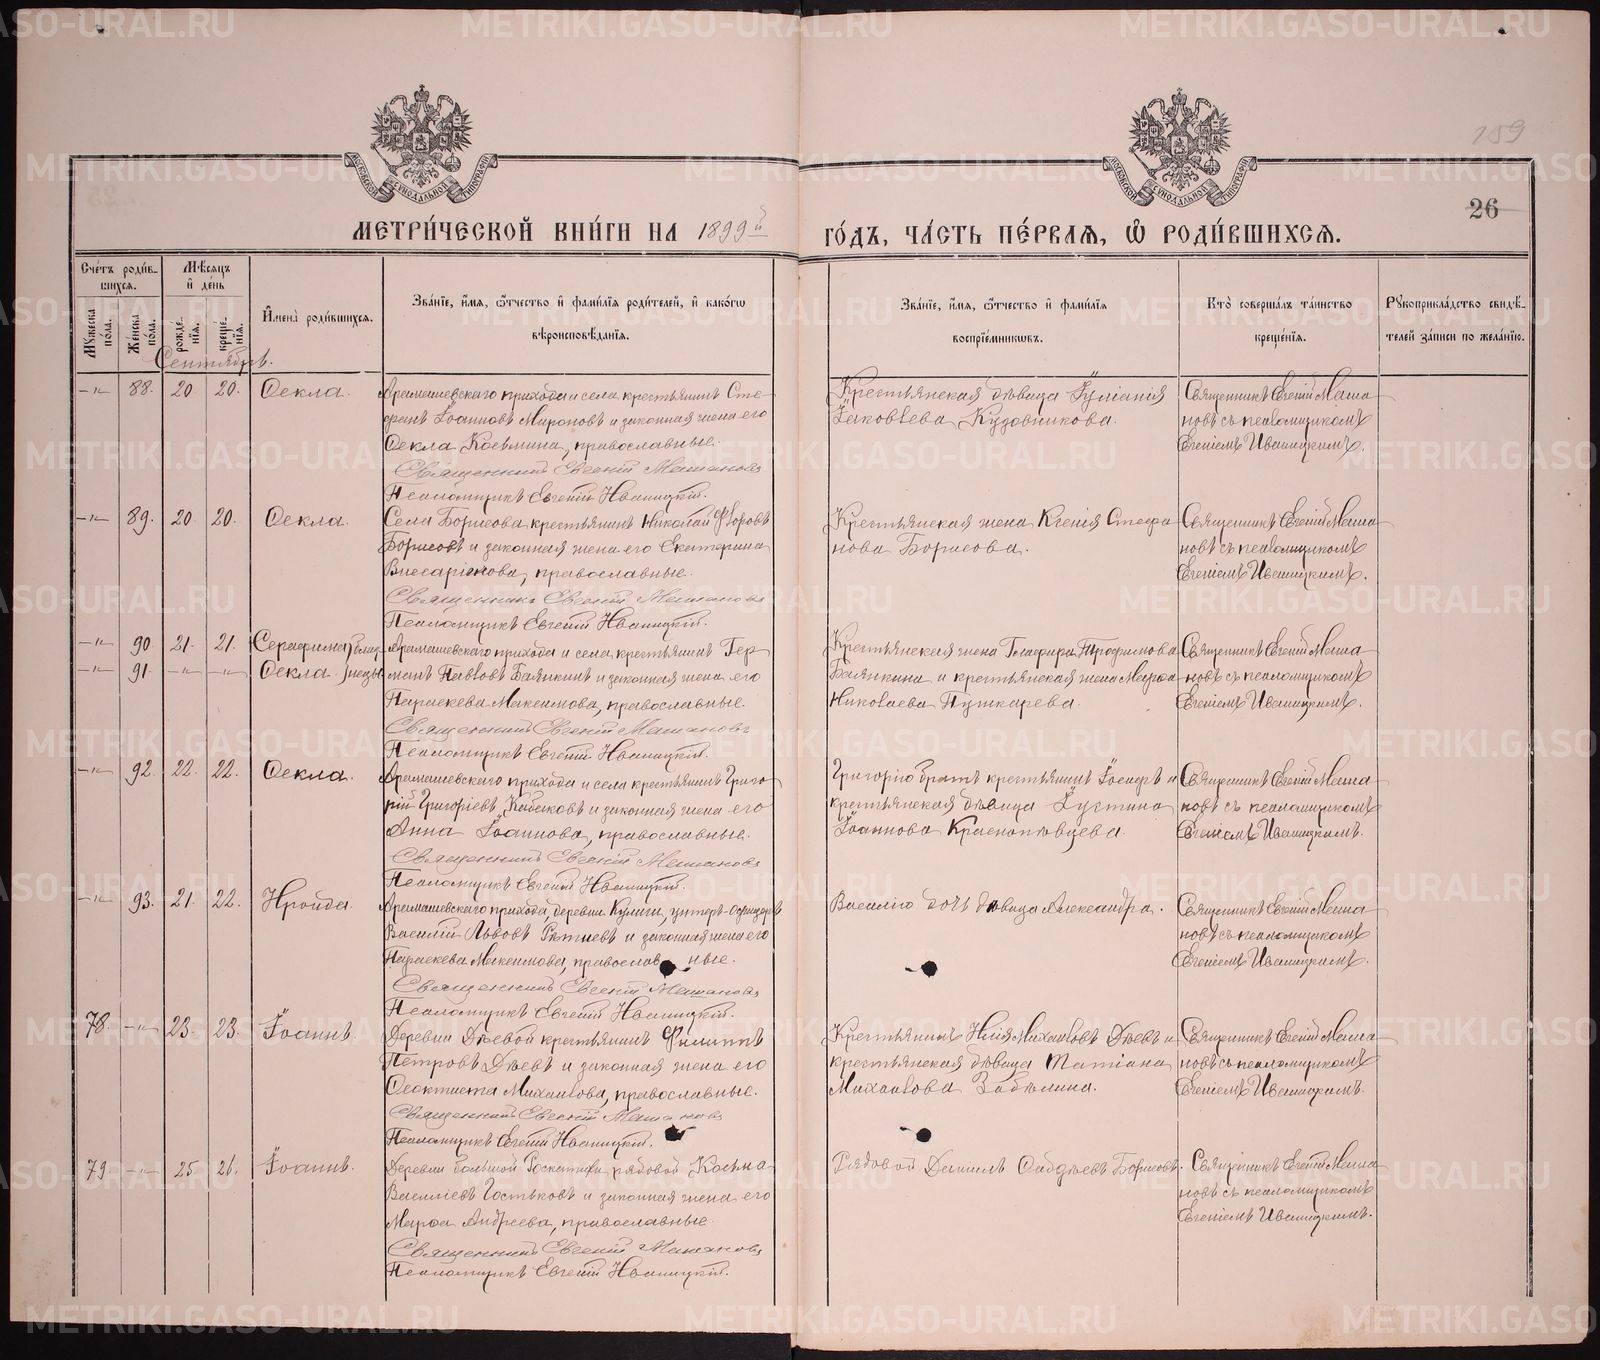 189
26
МЕТРИ́ЧЕСКОЙ КНИ́ГИ НА 1899й ГО́ДЪ, ЧА́СТЬ ПЕ́РВАЯ, Ѡ РОДИ́ВШИХСЯ.
Сче́тъ роди́в-
шихся.
Мꙋ́жеска по́ла.
Же́нска по́ла.
Мѣ́сяцъ и де́нь
рожде́-
нїя.
креще́-
нїя.
И́мена роди́вшихся.
Зва́нїе, и́мя, ѻ҆́тчество и фами́лїя роди́телей, и како́гѡ
вѣроисповѣ́данїя.
Зва́нїе, и́мя, ѻ҆́тчество и фами́лїя
воспрїе́мниковъ.
Кто̀ соверша́лъ та́инство
креще́нїя.
Рꙋкоприкла́дство свидѣ́-
телей за́писи по жела́нїю.
Сентябрь.
-"- 88. 20 20. Ѳекла.
Арамашевскаго прихода и села крестьянинъ Сте-
фанъ Іоанновъ Мироновъ и законная жена его
Ѳекла Козьмина, православные.
Священникъ Евгеній Машановъ
Псаломщикъ Евгеній Иваницкій.
Крестьянская дѣвица Іуліанія
Іаковлева Кузовникова.
Священникъ Евгеній Маша-
новъ съ псаломщикомъ
Евгеніемъ Иваницкимъ.
-"- 89. 20 20. Ѳекла.
Села Борисова крестьянинъ Николай Ѳлоровъ
Борисовъ и законная жена его Екатерина
Виссаріонова, православные.
Священникъ Евгеній Машановъ
Псаломщикъ Евгеній Иваницкій.
Крестьянская жена Ксенія Стефа-
нова Борисова.
Священникъ Евгеній Маша-
новъ съ псаломщикомъ
Евгеніемъ Иваницкимъ.
-"- 90 21. 21. Серафима близ-
-"- 91. -"- -"- Ѳекла. нецы
Арамашевскаго прихода и села крестьянинъ Гер-
манъ Павловъ Баянкинъ и законная жена его
Параскева Максимова, православные.
Священникъ Евгеній Машановъ
Псаломщикъ Евгеній Иваницкій.
Крестьянская жена Глафира Трофимова
Баянкина и крестьянская жена Марѳа
Николаева Пушкарева.
Священникъ Евгеній Маша-
новъ съ псаломщикомъ
Евгеніемъ Иваницкимъ.
-"- 92. 22. 22. Ѳекла.
Арамашевскаго прихода и села крестьянинъ Григо-
рій Григоріевъ и законная жена его
Анна Іоаннова, православные.
Священникъ Евгеній Машановъ
Псаломщикъ Евгеній Иваницкій.
Григорію братъ крестьянинъ Іосифъ и
крестьянская дѣвица Іустина
Іоаннова Краснопѣвцева.
Священникъ Евгеній Маша-
новъ съ псаломщикомъ
Евгеніемъ Иваницкимъ.
-"- 93. 21. 22. Ираида.
Арамашевскаго прихода, деревни Кулиги, унтеръ-офицеръ
Василій Львовъ и законная жена его
Параскева Максимова, православные.
Священникъ Евгеній Машановъ
Псаломщикъ Евгеній Иваницкій.
Василію дочь дѣвица Александра.
Священникъ Евгеній Маша-
новъ съ псаломщикомъ
Евгеніемъ Иваницкимъ.
78. -"- 23. 23. Іоаннъ.
Деревни Дѣевой крестьянинъ Филиппъ
Петровъ Дѣевъ и законная жена его
Ѳеоктиста Михаилова, православные.
Священникъ Евгеній Машановъ
Псаломщикъ Евгеній Иваницкій.
Крестьянинъ Илія Михаиловъ Дѣевъ и
крестьянская дѣвица Татіана
Михаилова Забѣлина.
Священникъ Евгеній Маша-
новъ съ псаломщикомъ
Евгеніемъ Иваницкимъ.
79 -"- 25 26. Іоаннъ.
Деревни Большой рядовой Косьма
Василіевъ Гостьковъ и законная жена его
Марѳа Андреева, православные.
Священникъ Евгеній Машановъ
Псаломщикъ Евгеній Иваницкій.
Рядовой Даніилъ Борисовъ.
Священникъ Евгеній Маша-
новъ съ псаломщикомъ
Евгеніемъ Иваницкимъ.
METRIKI.GASO-URAL.RU